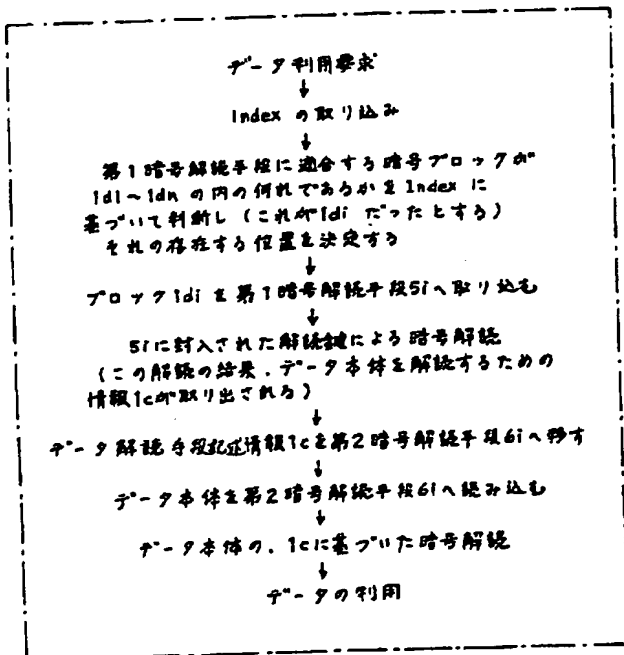 データ利用要求
↓
Indexの取り込み
↓
第1暗号解読手段に適合する暗号ブロックが
1d1～1dnの内の何れであるかをIndexに
基づいて判断し（これが1diだったとする）
それの存在する位置を決定する
↓
ブロック1diを第1暗号解読手段5iへ取り込む
↓
5iに封入された解読鍵による暗号解読
（この解読の結果．データ本体を解読するための
情報1cが取り出される）
↓
データ解読手段記述情報1cを第2暗号解読手段6iへ移す
↓
データ本体を第2暗号解読手段6iへ読み込む
↓
データ本体の．1cに基づいた暗号解読
↓
データの利用